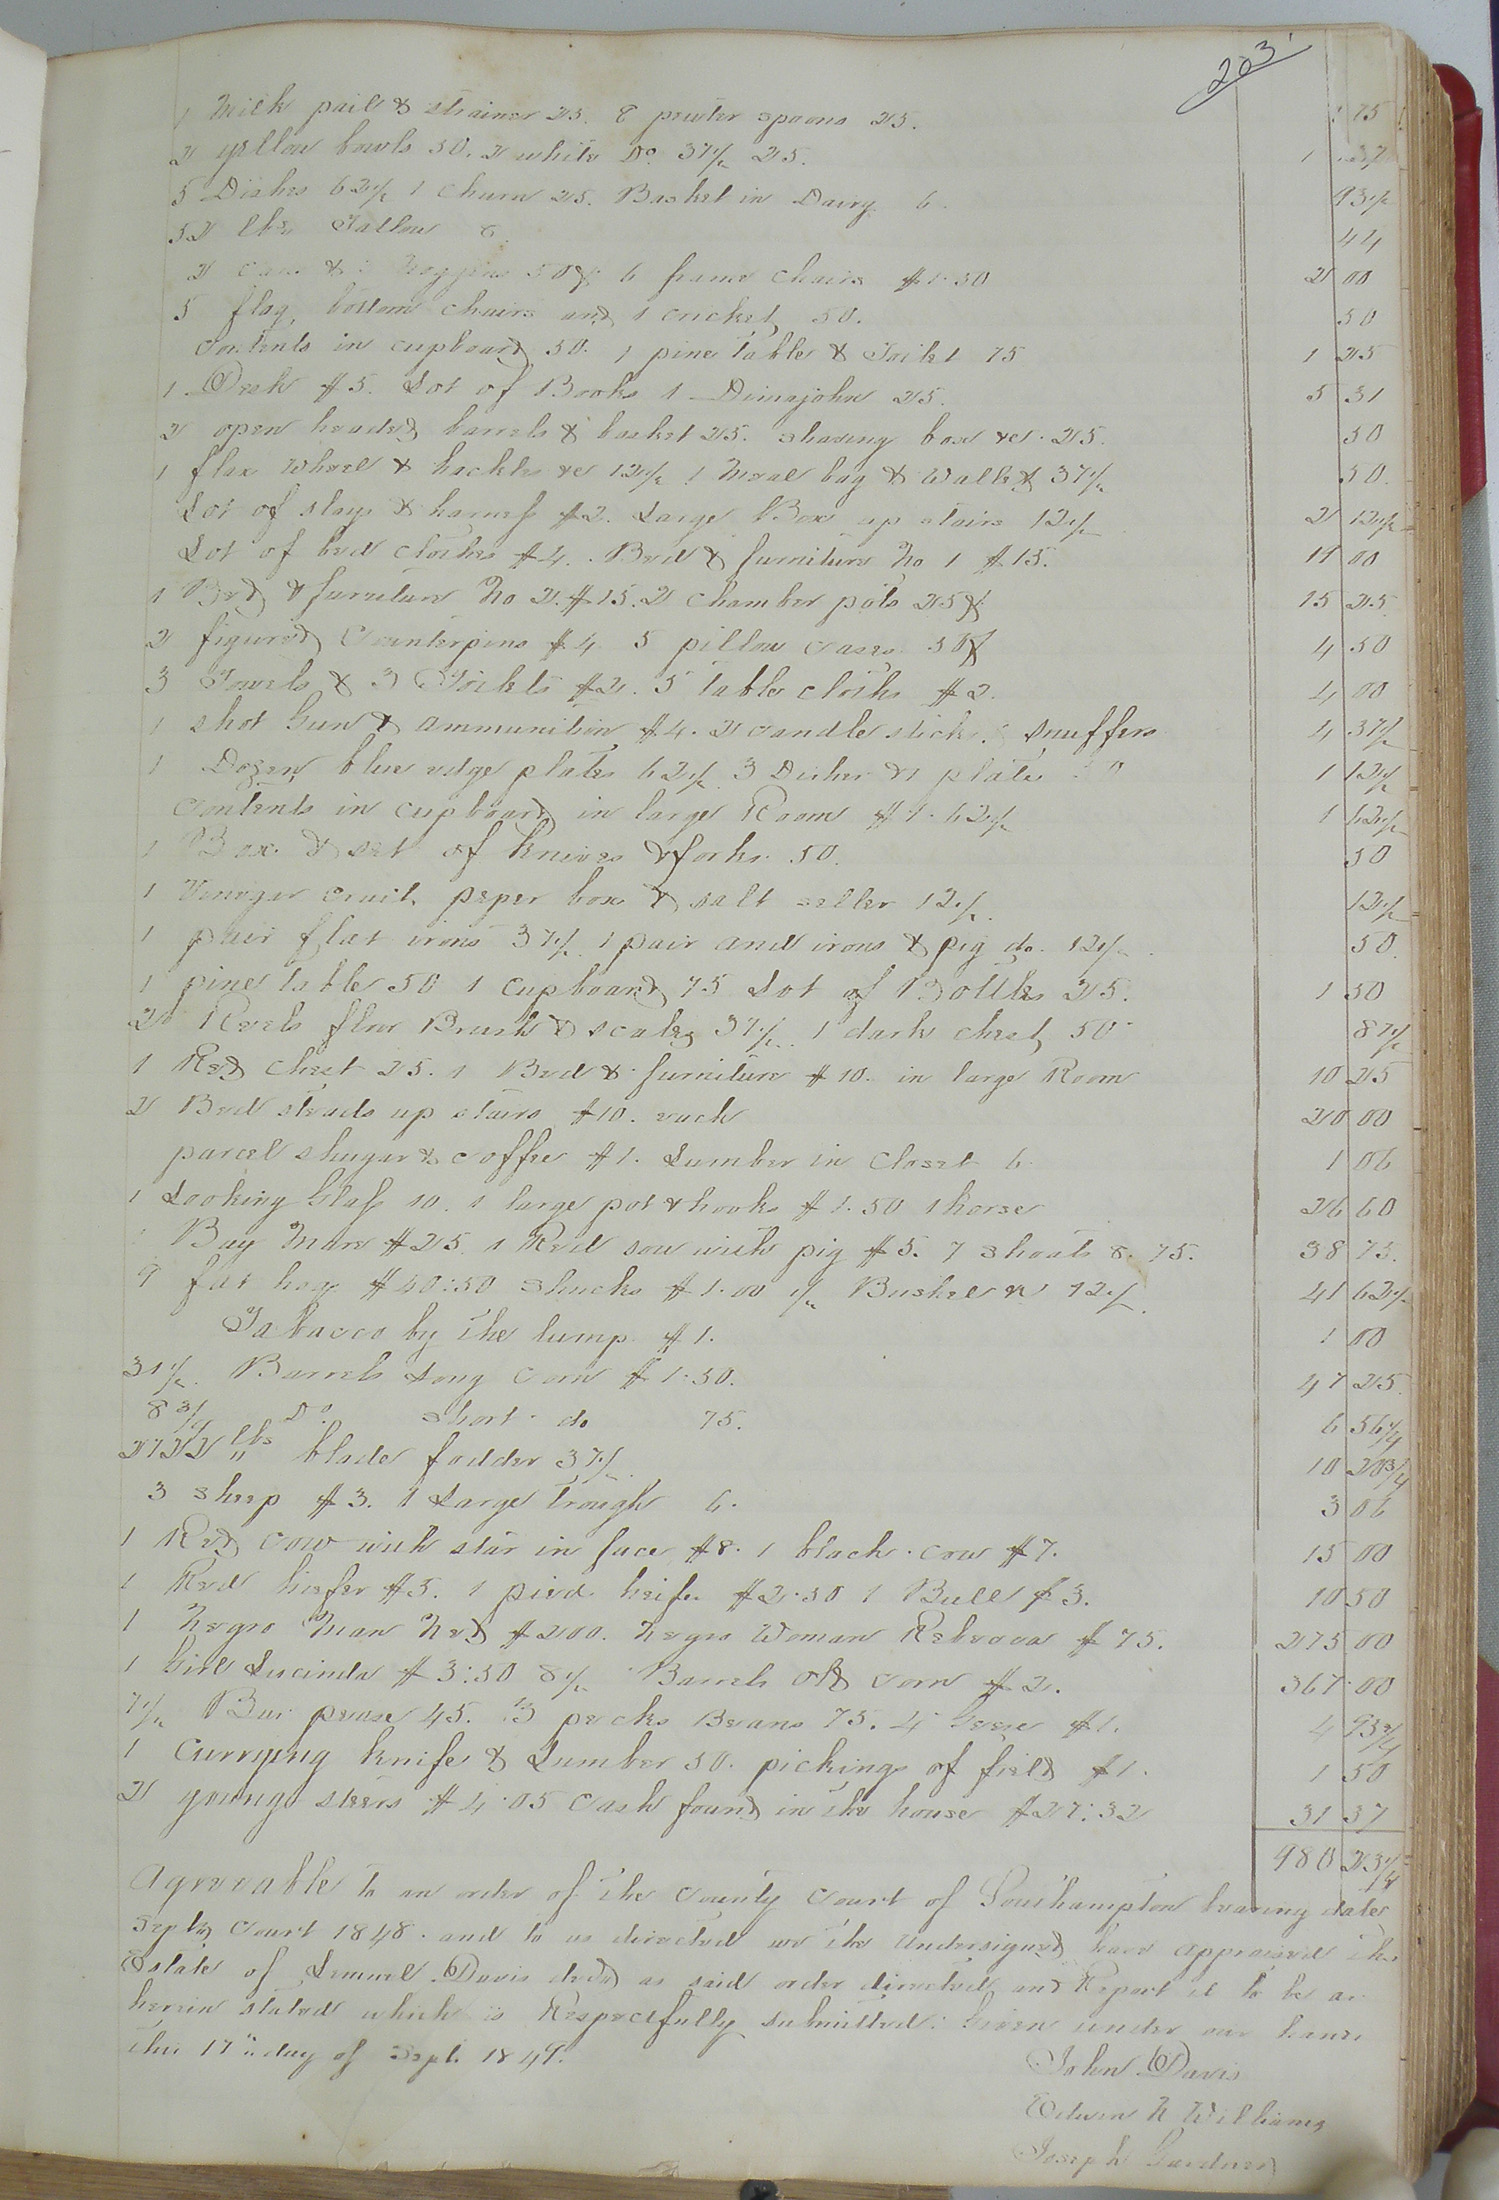 203
1 Milk pail & strainer 25. 8 pewter spoons 25. 75
2 yellow bowls 50. 2 white Do. 37½ 25. 1 37
5 Dishes 62½ 1 Churn 25. Basket in Dairy 6. 93½
52 lbs Tallow 44
2 & noggins 50¢ 6 frame chairs $1.50 2 00
5 flag bottom chairs and 1 cricket, 50. 50
Contents in cupboard 50. 1 pine table & Toilet 75 1 25
1 Desk $5. Lot of Books 1 Dimajohn 25. 5 31
2 open headed barrels & basket 25. shaving box &c. 25. 50
1 flax wheel & hackle &c 12½ 1 meal bag & Wallet 37½ 50.
Lot of slays & harness $2. Large Box up stairs 12½ 2 12½
Lot of bed clothes $4. Bed & furniture No 1 $15. 19 00
1 Bed & furniture No 2. $15. 2 chamber pots 25¢ 15 25
2 figured Counterpins $4 5 pillow cases 50¢ 4 50
3 Towels & 3 Toilets $2. 5 table cloths $2. 4 00
1 shot Gun & ammunition $4. 2 candle sticks. snuffers 4 37½
1 Dozen blue edge plates 62½ 3 Dishes & 1 plate 1 12½
Contents in cupboard in large Room $1.62½ 1 62½
1 Box & set of knives & forks. 50. 50
1 Vinegar cruit, peper box & salt seller 12½. 12½
1 pair flat irons 37½ 1 pair and irons & pig do. 12½. 50.
1 pine table 50 1 cupboard 75 Lot of Bottles 25. 1 50
2 Reels flour Brush & scales 37½. 1 dark chest, 50 87½
1 Red Chest 25. 1 Bed & furniture $10. in large Room 10 25
2 Bed steads up stairs $10. each 20 00
parcel shugar & coffee $1. Lumber in Closet 6 1 06
1 Looking Glass 10. 1 large pot & hooks $1.50 1 horse 26 60
Bay Mare $25. 1 Red sow with pig $5. 7 shoats 8.75. 38 75.
9 fat hogs $40:50 shucks $1.00 ½ Bushel 12½. 41 62½
Tobacco by the lump $1. 1 00
31½. Barrels Long Corn $1.50. 47 25.
8¾ Do. short do 75. 6 56¼
2722 lbs blade fodder 37½. 10 20¾
3 sheep $3. 1 Large Trough 6. 3 06
1 Red cow with star in face $8. 1 black cow $7. 15 00
1 Red hiefer $5. 1 pied heifer $2.50 1 Bull $3. 10 50
1 Negro Man Ned $200. Negro Woman Rebecca $75. 275 00
1 Girl Lucinda $3:50 8½ Barrels old corn $2. 367 00
7½ Bus. pease 45. 3 pecks Beans 75. 4 Geese $1. 4 93¾
1 Currying knife & Lumber 50. pickings of field $1. 1 50
2 young steers $4.05 Cash found in the house $27:32 31 37
980 23¼
Agreeable to an order of the County Court of Southampton bearing date
Septr Court 1848. and to us directed we the Undersigned have appraised the
Estate of Lemuel Davis decd as said order directed and Report it to be as
herein stated which is Respectfully submitted. Given under our hands
this 17" day of Sept. 1849.
John Davis
Edwin N Williams
Joseph Gardner